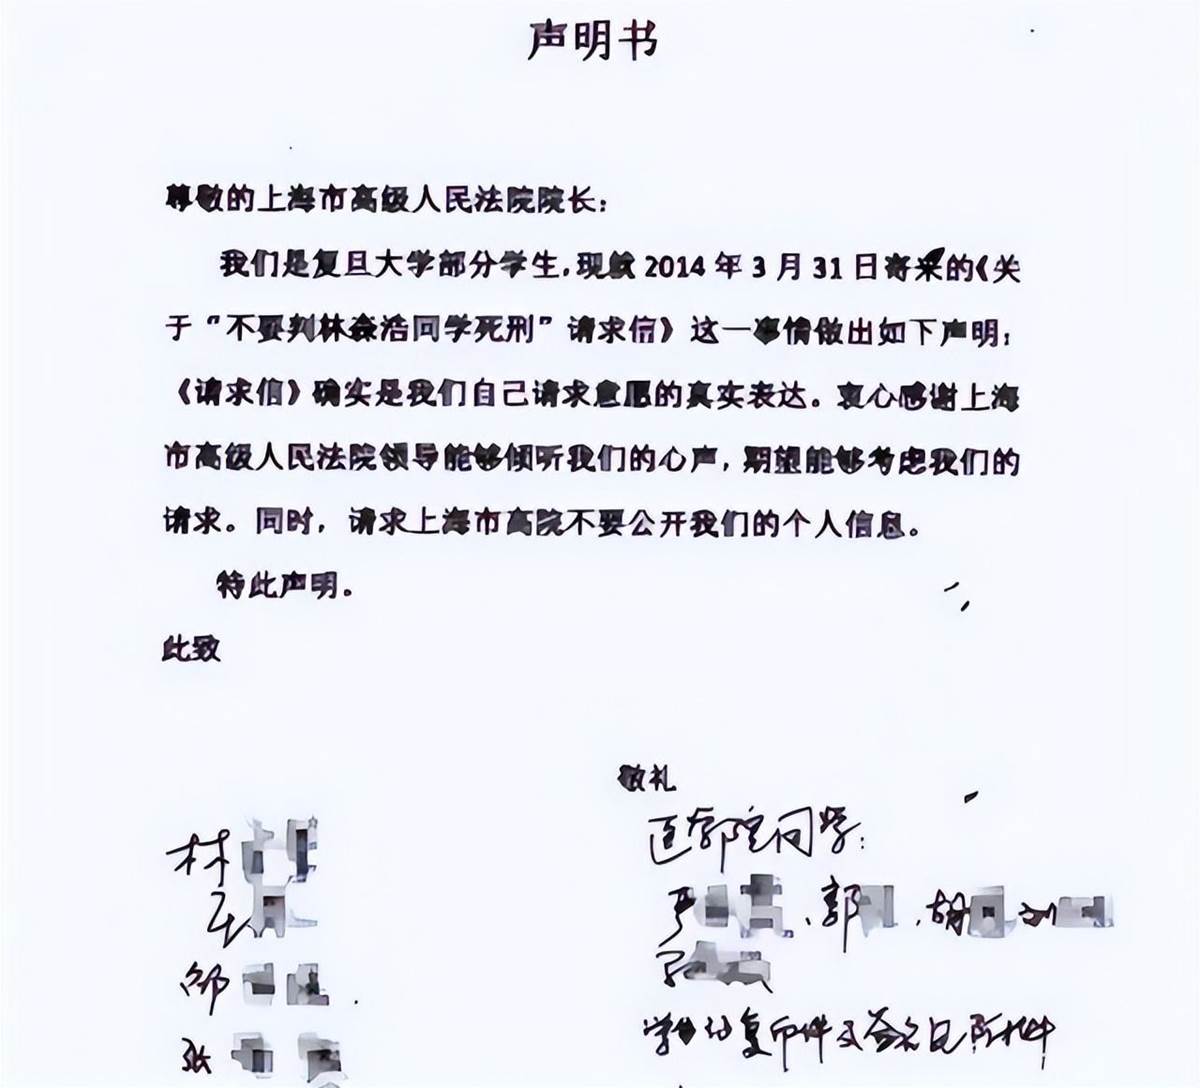 声明书
尊敬的上海市高级人民法院院长：
我们是复旦大学部分学生，现就 2014 年 3 月 31 日寄来的《关
于“不要判林森浩同学死刑”请求信》这一事情做出如下声明：
《请求信》确实是我们自己请求意愿的真实表达。衷心感谢上海
市高级人民法院领导能够倾听我们的心声，期望能够考虑我们的
请求。同时，请求上海市高院不要公开我们的个人信息。
特此声明。
此致
敬礼
医学院同学：
林
严 、郭 ，胡 、刘
邹
张
学生证复印件及签名见附件